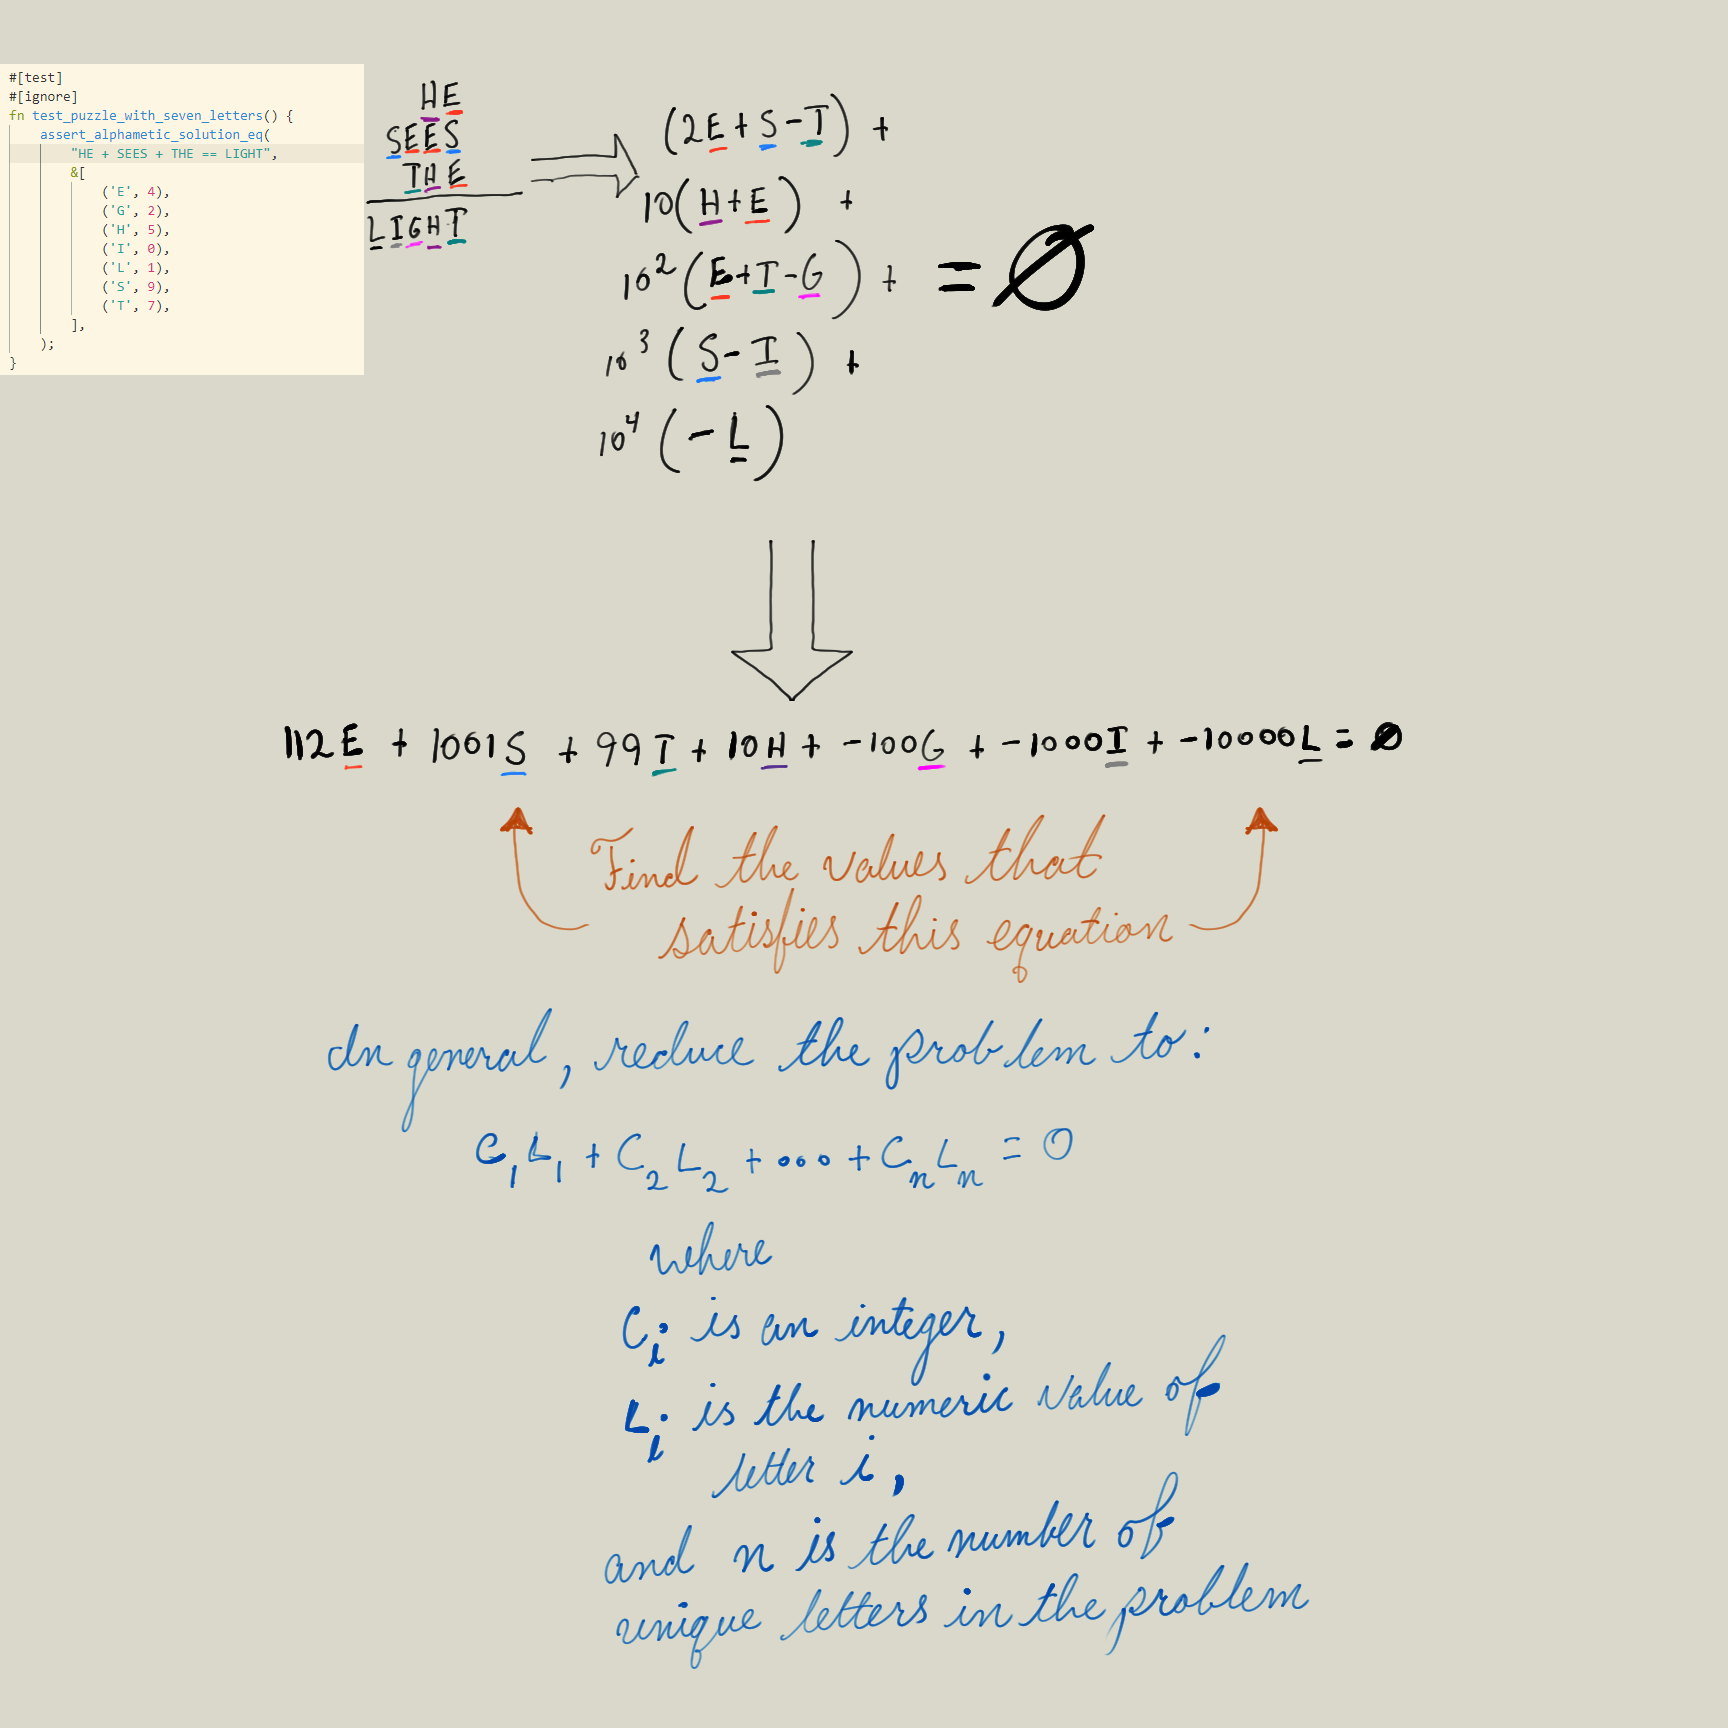 #[test]
#[ignore]
fn test_puzzle_with_seven_letters() {
    assert_alphametic_solution_eq(
        "HE + SEES + THE == LIGHT",
        &[
            ('E', 4),
            ('G', 2),
            ('H', 5),
            ('I', 0),
            ('L', 1),
            ('S', 9),
            ('T', 7),
        ],
    );
}
HE
SEES
THE
LIGHT
(2E+S-T) +
10(H+E) +
10²(E+T-G) + = 0
10³(S-I) +
10⁴(-L)
112E + 1001S + 99T + 10H + -100G + -1000I + -10000L = 0
Find the values that
satisfies this equation
In general, reduce the problem to:
C₁L₁ + C₂L₂ + ... + CₙLₙ = 0
where
Cᵢ is an integer,
Lᵢ is the numeric value of
letter i,
and n is the number of
unique letters in the problem